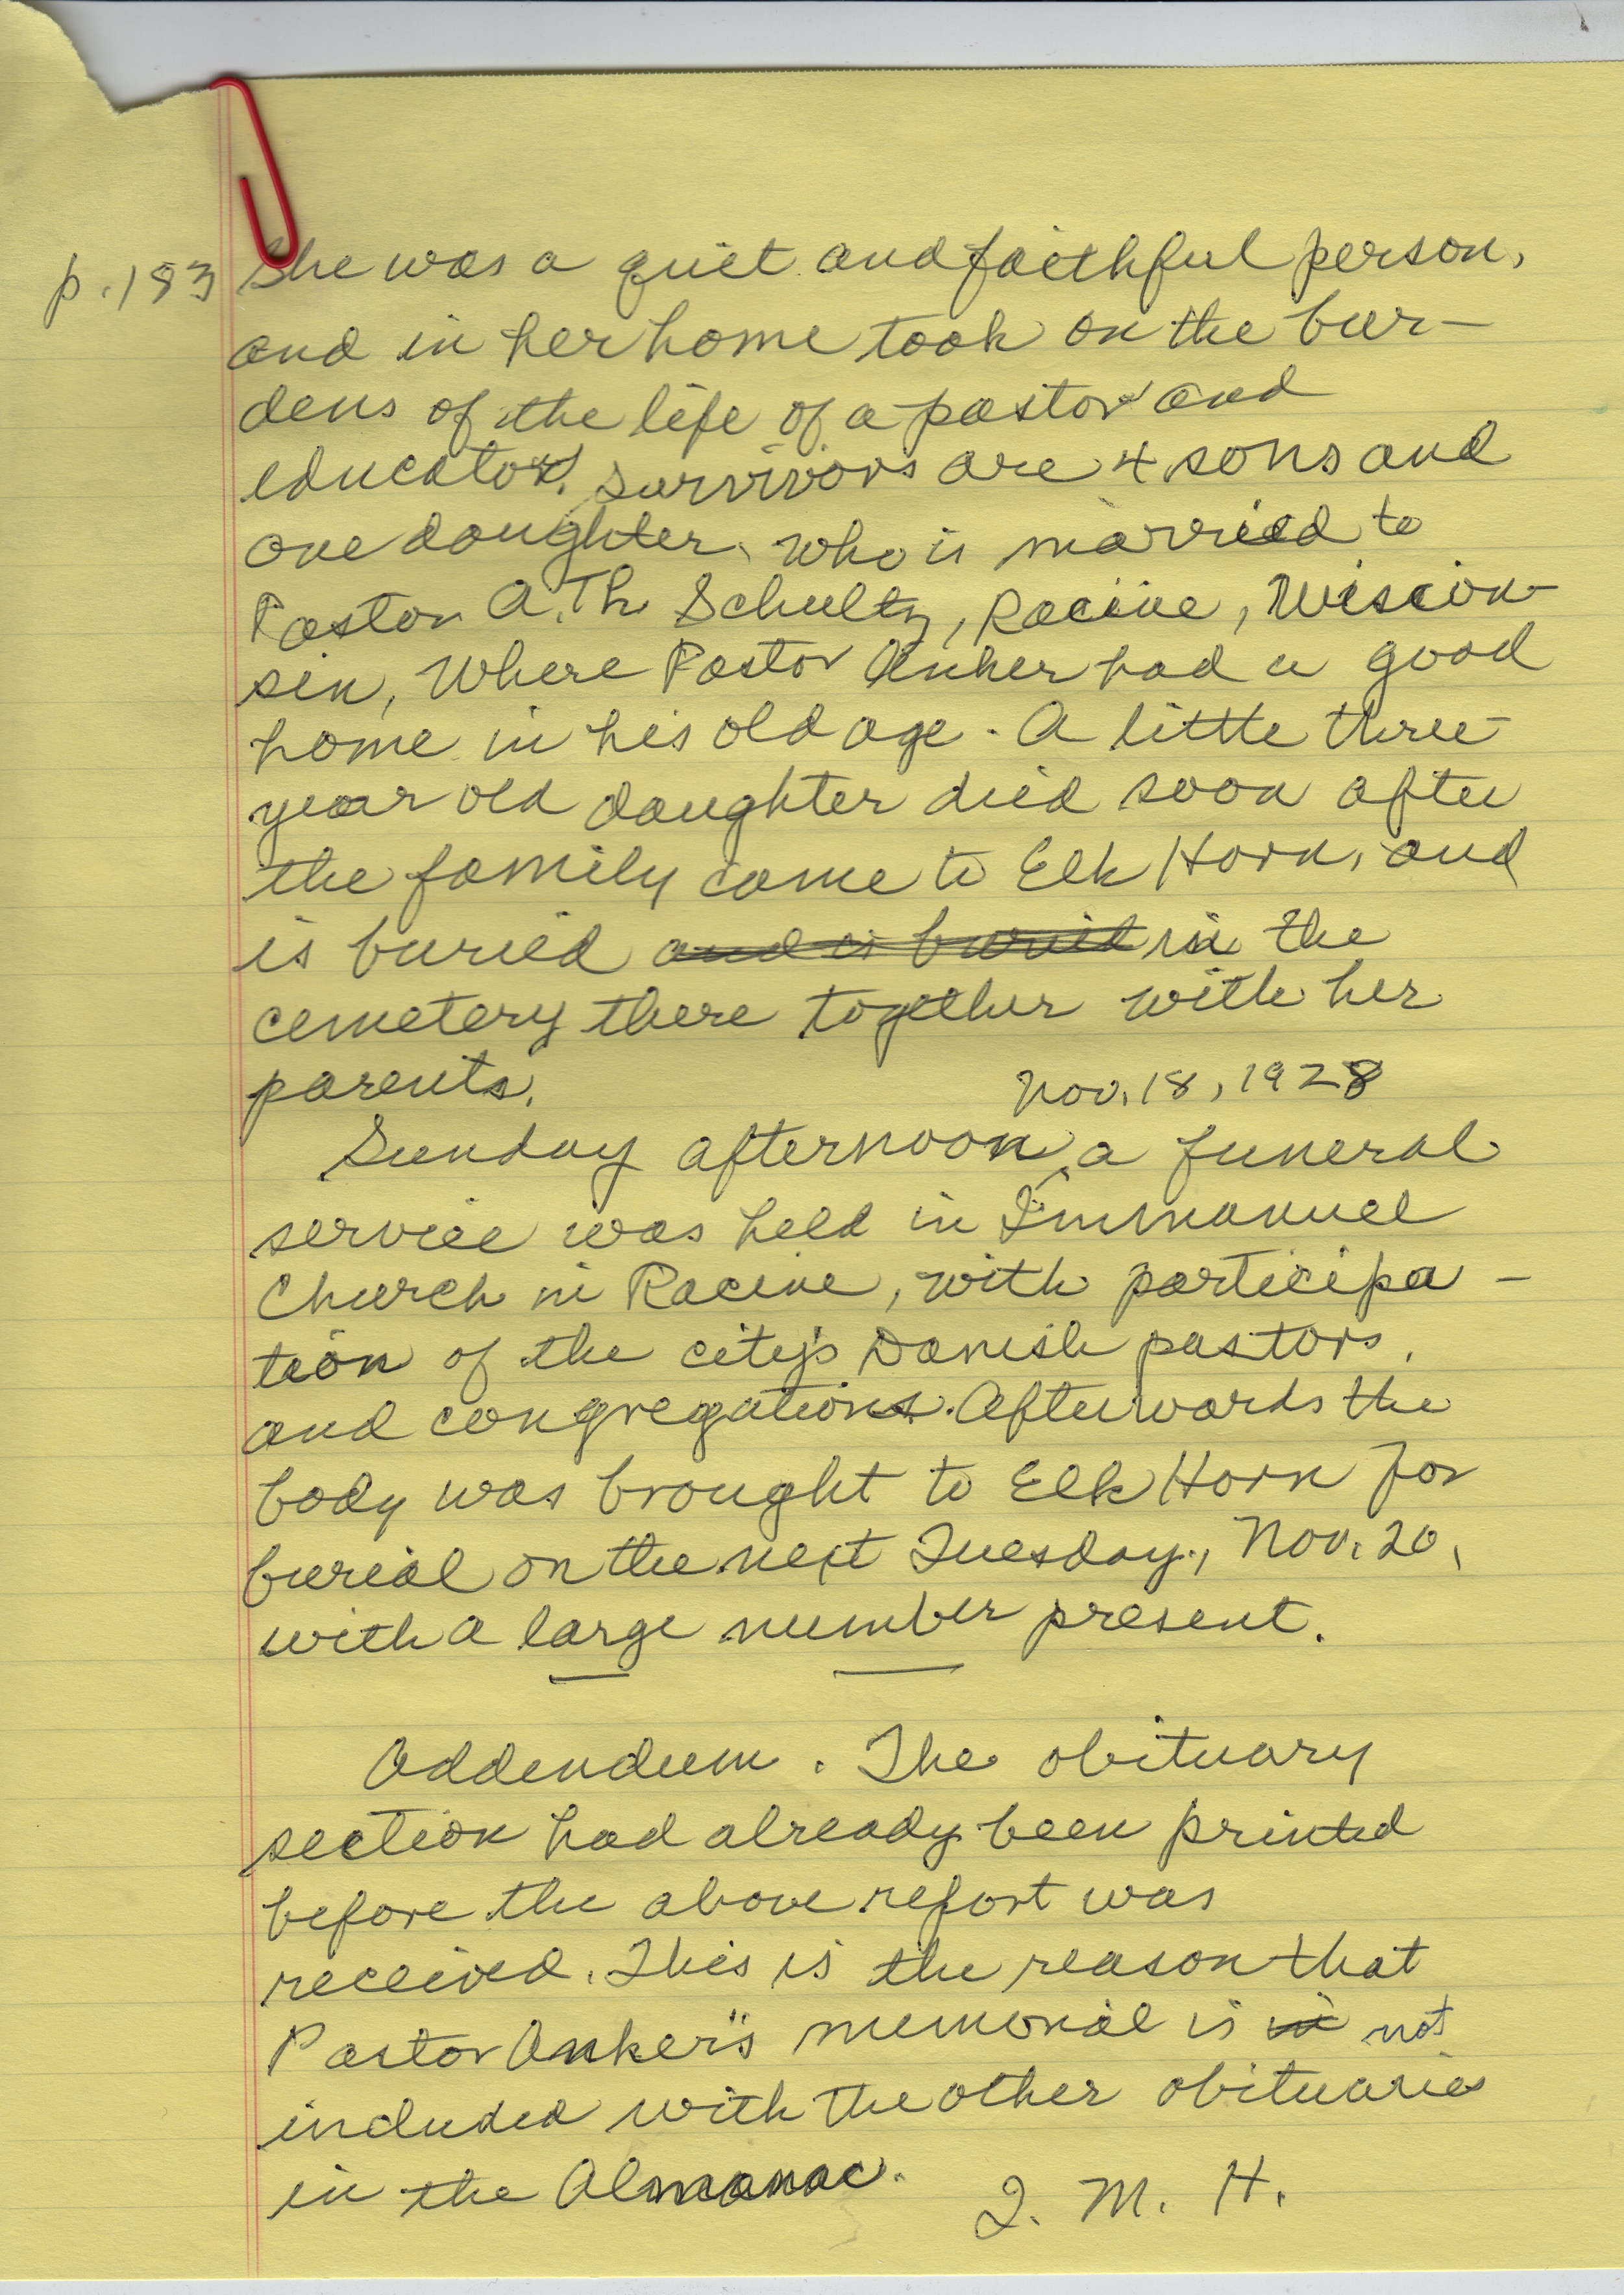 p. 183 She was a quiet and faithful person,
and in her home took on the bur-
dens of the life of a pastor and
educator. Survivors are 4 sons and
one daughter, who is married to
Pastor A. Th. Schultz, Racine, Wiscon-
sin, where Pastor Anker had a good
home in his old age. A little three-
year old daughter died soon after
the family came to Elk Horn, and
is buried and is buried in the
cemetery there together with her
parents.
Nov. 18, 1928
Sunday afternoon, a funeral
service was held in Immanuel
Church in Racine, with participa-
tion of the city's Danish pastors
and congregations. Afterwards the
body was brought to Elk Horn for
burial on the next Tuesday, Nov. 20,
with a large number present.
Addendum. The obituary
section had already been printed
before the above report was
received. This is the reason that
Pastor Anker's memorial is in not
included with the other obituaries
in the Almanac. J. M. H.